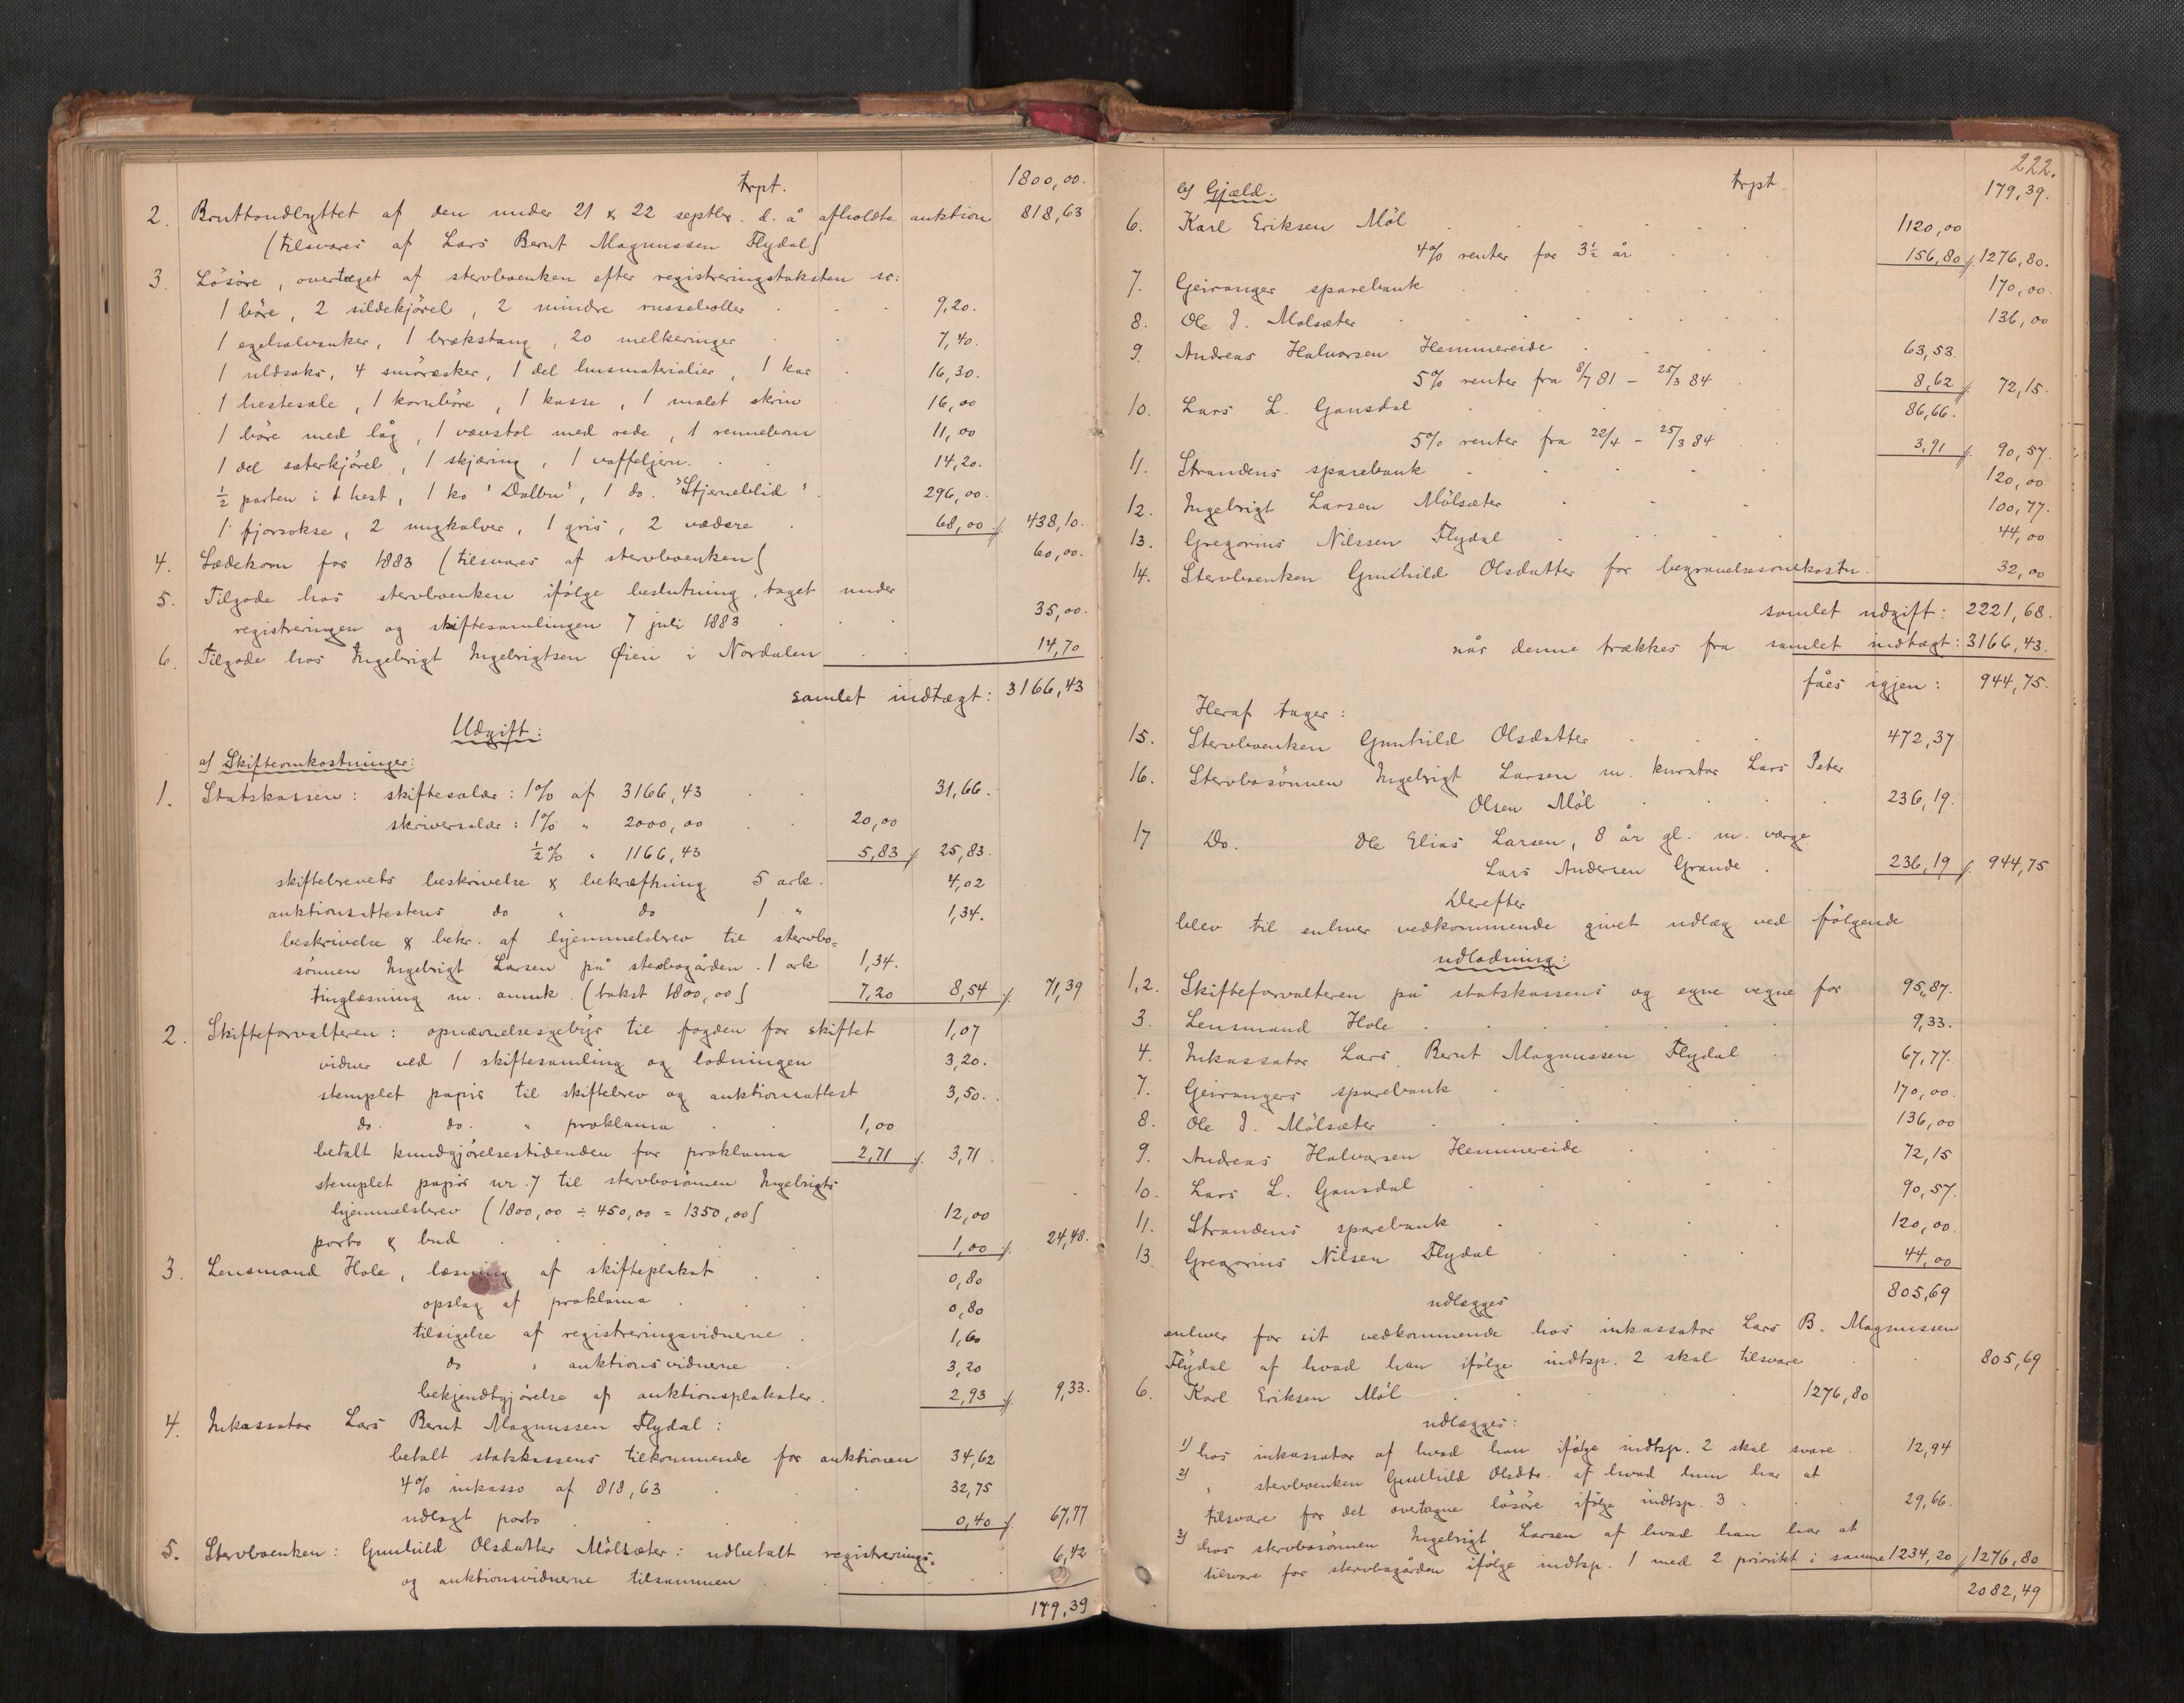 trpt. 1800,00.
2. Bruttoudbyttet af den under 21 & 22 septbr. d. å afholdte auktion 818,63
(tilsvares af Lars Bernt Magnussen Flydal)
3. Lösöre, overtaget af stervboenken efter registreringstaksten sc:
1 böre, 2 sildekjörel, 2 mindre russeboller 9,20.
1 egehalvanker, 1 brækstang, 20 melkeringer 7,40.
1 uldsaks, 4 smöræsker, 1 del husmaterialier, 1 kar 16,30.
1 hestesæle, 1 kornböre, 1 kasse, 1 malet skrin 16,00
1 böre med låg, 1 vævstol med rede, 1 rennebom 11,00
1 del sæterkjörel, 1 skjæring, 1 vaffeljern. 14,20.
½ parten i 1 hest, 1 ko "Dalbu", 1 do. "Stjerneblid" 296,00.
1 fjorsokse, 2 ungkalver, 1 gris, 2 vædere 68,00 /. 438,10.
4. Sædekorn for 1883 (tilsvares af stervboenken) 60,00.
5. Tilgode hos stervboenken ifölge beslutning, taget under
registreringen og skiftesamlingen 7 juli 1883 35,00.
6. Tilgode hos Ingebrigt Ingebrigtsen Øien i Nordalen 14,70
samlet indtægt: 3166,43
Udgift:
a) Skifteomkostninger:
1. Statskassen: skiftesalær: 1% af 3166,43 31,66.
skriversalær: 1% " 2000,00 20,00
½% " 1166,43 5,83 /. 25,83.
skiftebrevets beskrivelse & bekræftning 5 ark. 4,02
auktionsattestens do " do 1 " 1,34.
beskrivelse & bekr. af hjemmelsbrev til stervbo=
sönnen Ingebrigt Larsen på stervbogården. 1 ark 1,34.
tinglæsning m. anmk. (takst 1800,00) 7,20 8,54 /. 71,39
2. Skifteforvalteren: opnævnelsesgebyr til fogden for skiftet 1,07
vidner ved 1 skiftesamling og lodningen 3,20.
stemplet papir til skiftebrev og auktionsattest 3,50.
do. do. " proklama 1,00
betalt kundgjörelsestidenden for proklama 2,71 /. 3,71
stemplet papir nr. 7 til stervbosönnen Ingebrigts
hjemmelsbrev (1800,00 ÷ 450,00 = 1350,00) 12,00
porto & bud 1,00 /. 24,48.
3. Lensmand Hole, læsning af skifteplakat 0,80
opslag af proklama 0,80
tilsigelse af registreringsvidnerne 1,60
do " auktionsvidnerne 3,20
bekjendtgjörelse af auktionsplakater. 2,93 /. 9,33.
4. Inkassator Lars Bernt Magnussen Flydal:
betalt statskassens tilkommende for auktionen 34,62
4% inkasso af 818,63 32,75
udlagt porto 0,40 /. 67,77
5. Stervboenken: Gunhild Olsdatter Mölsæter: udbetalt registrerings=
og auktionsvidnerne tilsammen 6,42
179,39
222.
trpt. 179,39.
b) Gjæld:
6. Karl Eriksen Möl 1120,00
4% renter for 3½ år 156,80 /. 1276,80.
7. Geiranger sparebank 170,00.
8. Ole J. Molsæter 136,00
9. Andreas Halvorsen Hemmereide 63,53.
5% renter fra 8/7 81 - 25/3 84 8,62 /. 72,15.
10. Lars L. Gausdal 86,66.
5% renter fra 22/4 - 25/3 84 3,91 /. 90,57.
11. Strandens sparebank 120,00
12. Ingebrigt Larsen Mölsæter 100,77.
13. Gregorius Nilssen Flydal 44,00
14. Stervboenken Gunhild Olsdatter for begravelsesomkostn. 32,00
samlet udgift: 2221,68.
når denne trækkes fra samlet indtægt: 3166,43.
fåes igjen: 944,75.
Heraf tager:
15. Stervboenken Gunhild Olsdatter 472,37
16. Stervbosönnen Ingebrigt Larsen m. kurator Lars Peter
Olsen Möl 236,19.
17 Do. Ole Elias Larsen, 8 år gl. m. værge
Lars Andersen Grande 236,19 /. 944,75
Derefter
blev til enhver vedkommende givet udlæg ved fölgende
udlodning:
1,2. Skifteforvalteren på statskassens og egne vegne for 95,87.
3. Lensmand Hole 9,33.
4. Inkassator Lars Bernt Magnussen Flydal 67,77.
7. Geirangers sparebank 170,00.
8. Ole J. Mölsæter 136,00
9. Andreas Halvorsen Hemmereide 72,15
10. Lars L. Gausdal 90,57.
11. Strandens sparebank 120,00.
13 Gregorius Nilsen Flydal 44,00
805,69
udlægges
enhver for sit vedkommende hos inkassator Lars B. Magnussen
Flydal af hvad han ifölge indtsp. 2 skal tilsvare 805,69
6. Karl Eriksen Möl 1276,80
udlægges:
1) hos inkassator af hvad han ifölge indtsp. 2 skal svare 12,94
2) " stervboenken Gunhild Olsdtr. af hvad hun har at
tilsvare for det overtagne lösöre ifölge indtsp. 3 29,66.
3) hos stervbosönnen Ingebrigt Larsen af hvad han har at
tilsvare for stervbogården ifölge indtsp. 1 med 2 prioritet i samme 1234,20 /. 1276,80
2082,49